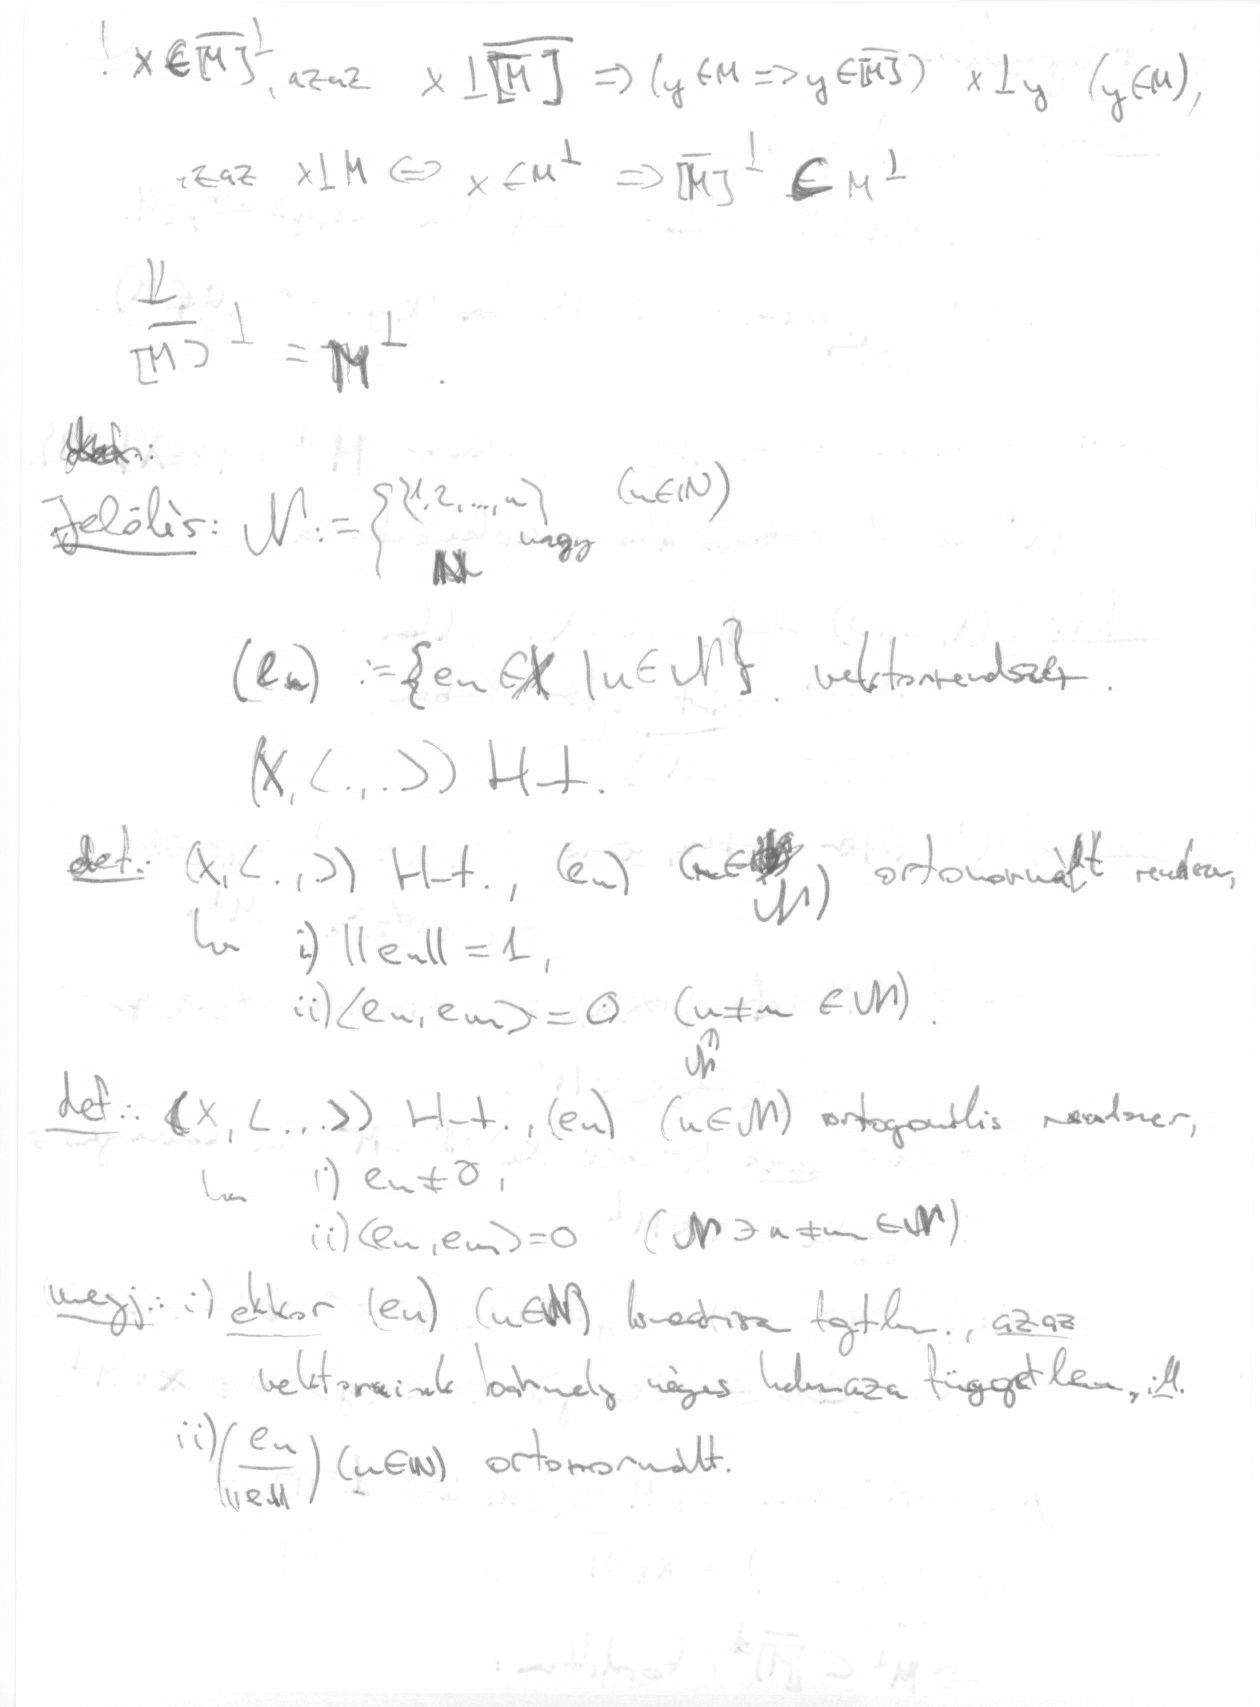 ! x ∈ [M̅]^⊥, azaz x ⊥ [M̅] ⇒ (y ∈ M ⇒ y ∈ [M̅]) x ⊥ y (y ∈ M),
azaz x ⊥ M ⇔ x ∈ M^⊥ ⇒ [M̅]^⊥ ⊂ M^⊥
⇓
[M̅]^⊥ = M^⊥.
Jelölés: 𝒩 := { {1,2,...,n} (n ∈ ℕ)
vagy
ℕ
(en) := {en ∈ X | n ∈ 𝒩} vektorrendszer.
(X, <.,.>) H-t.
def.: (X, <.,.>) H-t., (en) (n ∈ 𝒩) ortonormált rendszer,
ha i) ||en|| = 1,
ii) <en, em> = 0 (n ≠ m ∈ 𝒩).
𝒩
def.: (X, <.,.>) H-t., (en) (n ∈ 𝒩) ortogonális rendszer,
ha i) en ≠ 0,
ii) <en, em> = 0 (𝒩 ∋ n ≠ m ∈ 𝒩)
megj.: i) ekkor (en) (n ∈ 𝒩) lineárisan fgtlen., azaz
vektorainak bármely véges halmaza független,
ii) (en / ||en||) (n ∈ ℕ) ortonormált.